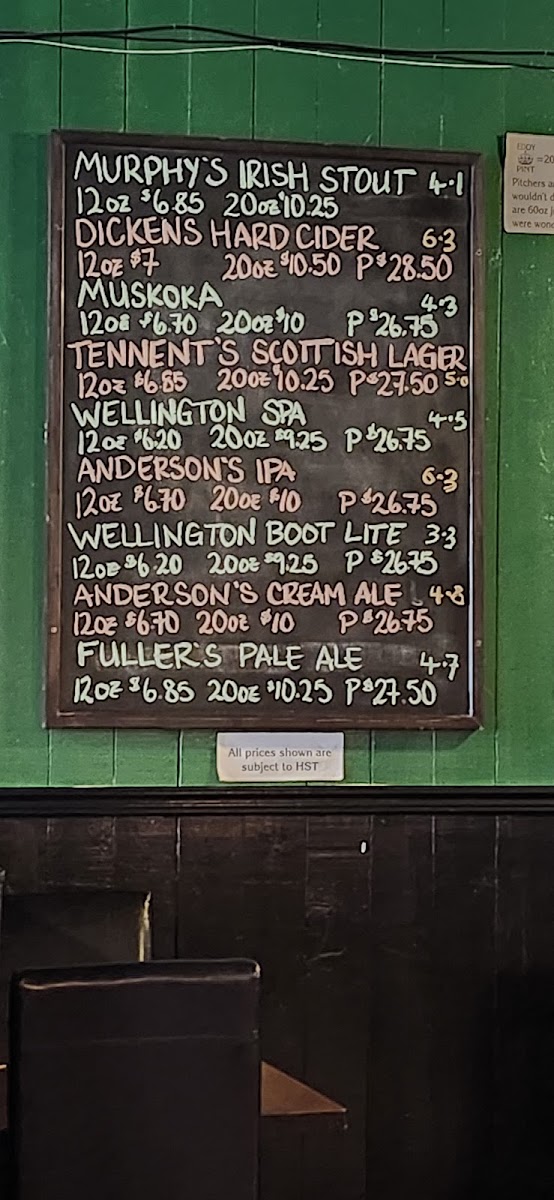 MURPHY'S IRISH STOUT 4.1
12oz $6.85 20oz $10.25
DICKENS HARD CIDER 6.3
12oz $7 20oz $10.50 P $28.50
MUSKOKA 4.3
12oz $6.70 20oz $10 P $26.75
TENNENT'S SCOTTISH LAGER
12oz $6.85 20oz $10.25 P $27.50 5.0
WELLINGTON SPA 4.5
12oz $6.20 20oz $9.25 P $26.75
ANDERSON'S IPA 6.3
12oz $6.70 20oz $10 P $26.75
WELLINGTON BOOT LITE 3.3
12oz $6.20 20oz $9.25 P $26.75
ANDERSON'S CREAM ALE 4.8
12oz $6.70 20oz $10 P $26.75
FULLER'S PALE ALE 4.7
12oz $6.85 20oz $10.25 P $27.50
All prices shown are
subject to HST
=20
PINT
Pitchers a
wouldn't d
are 60oz j
were won